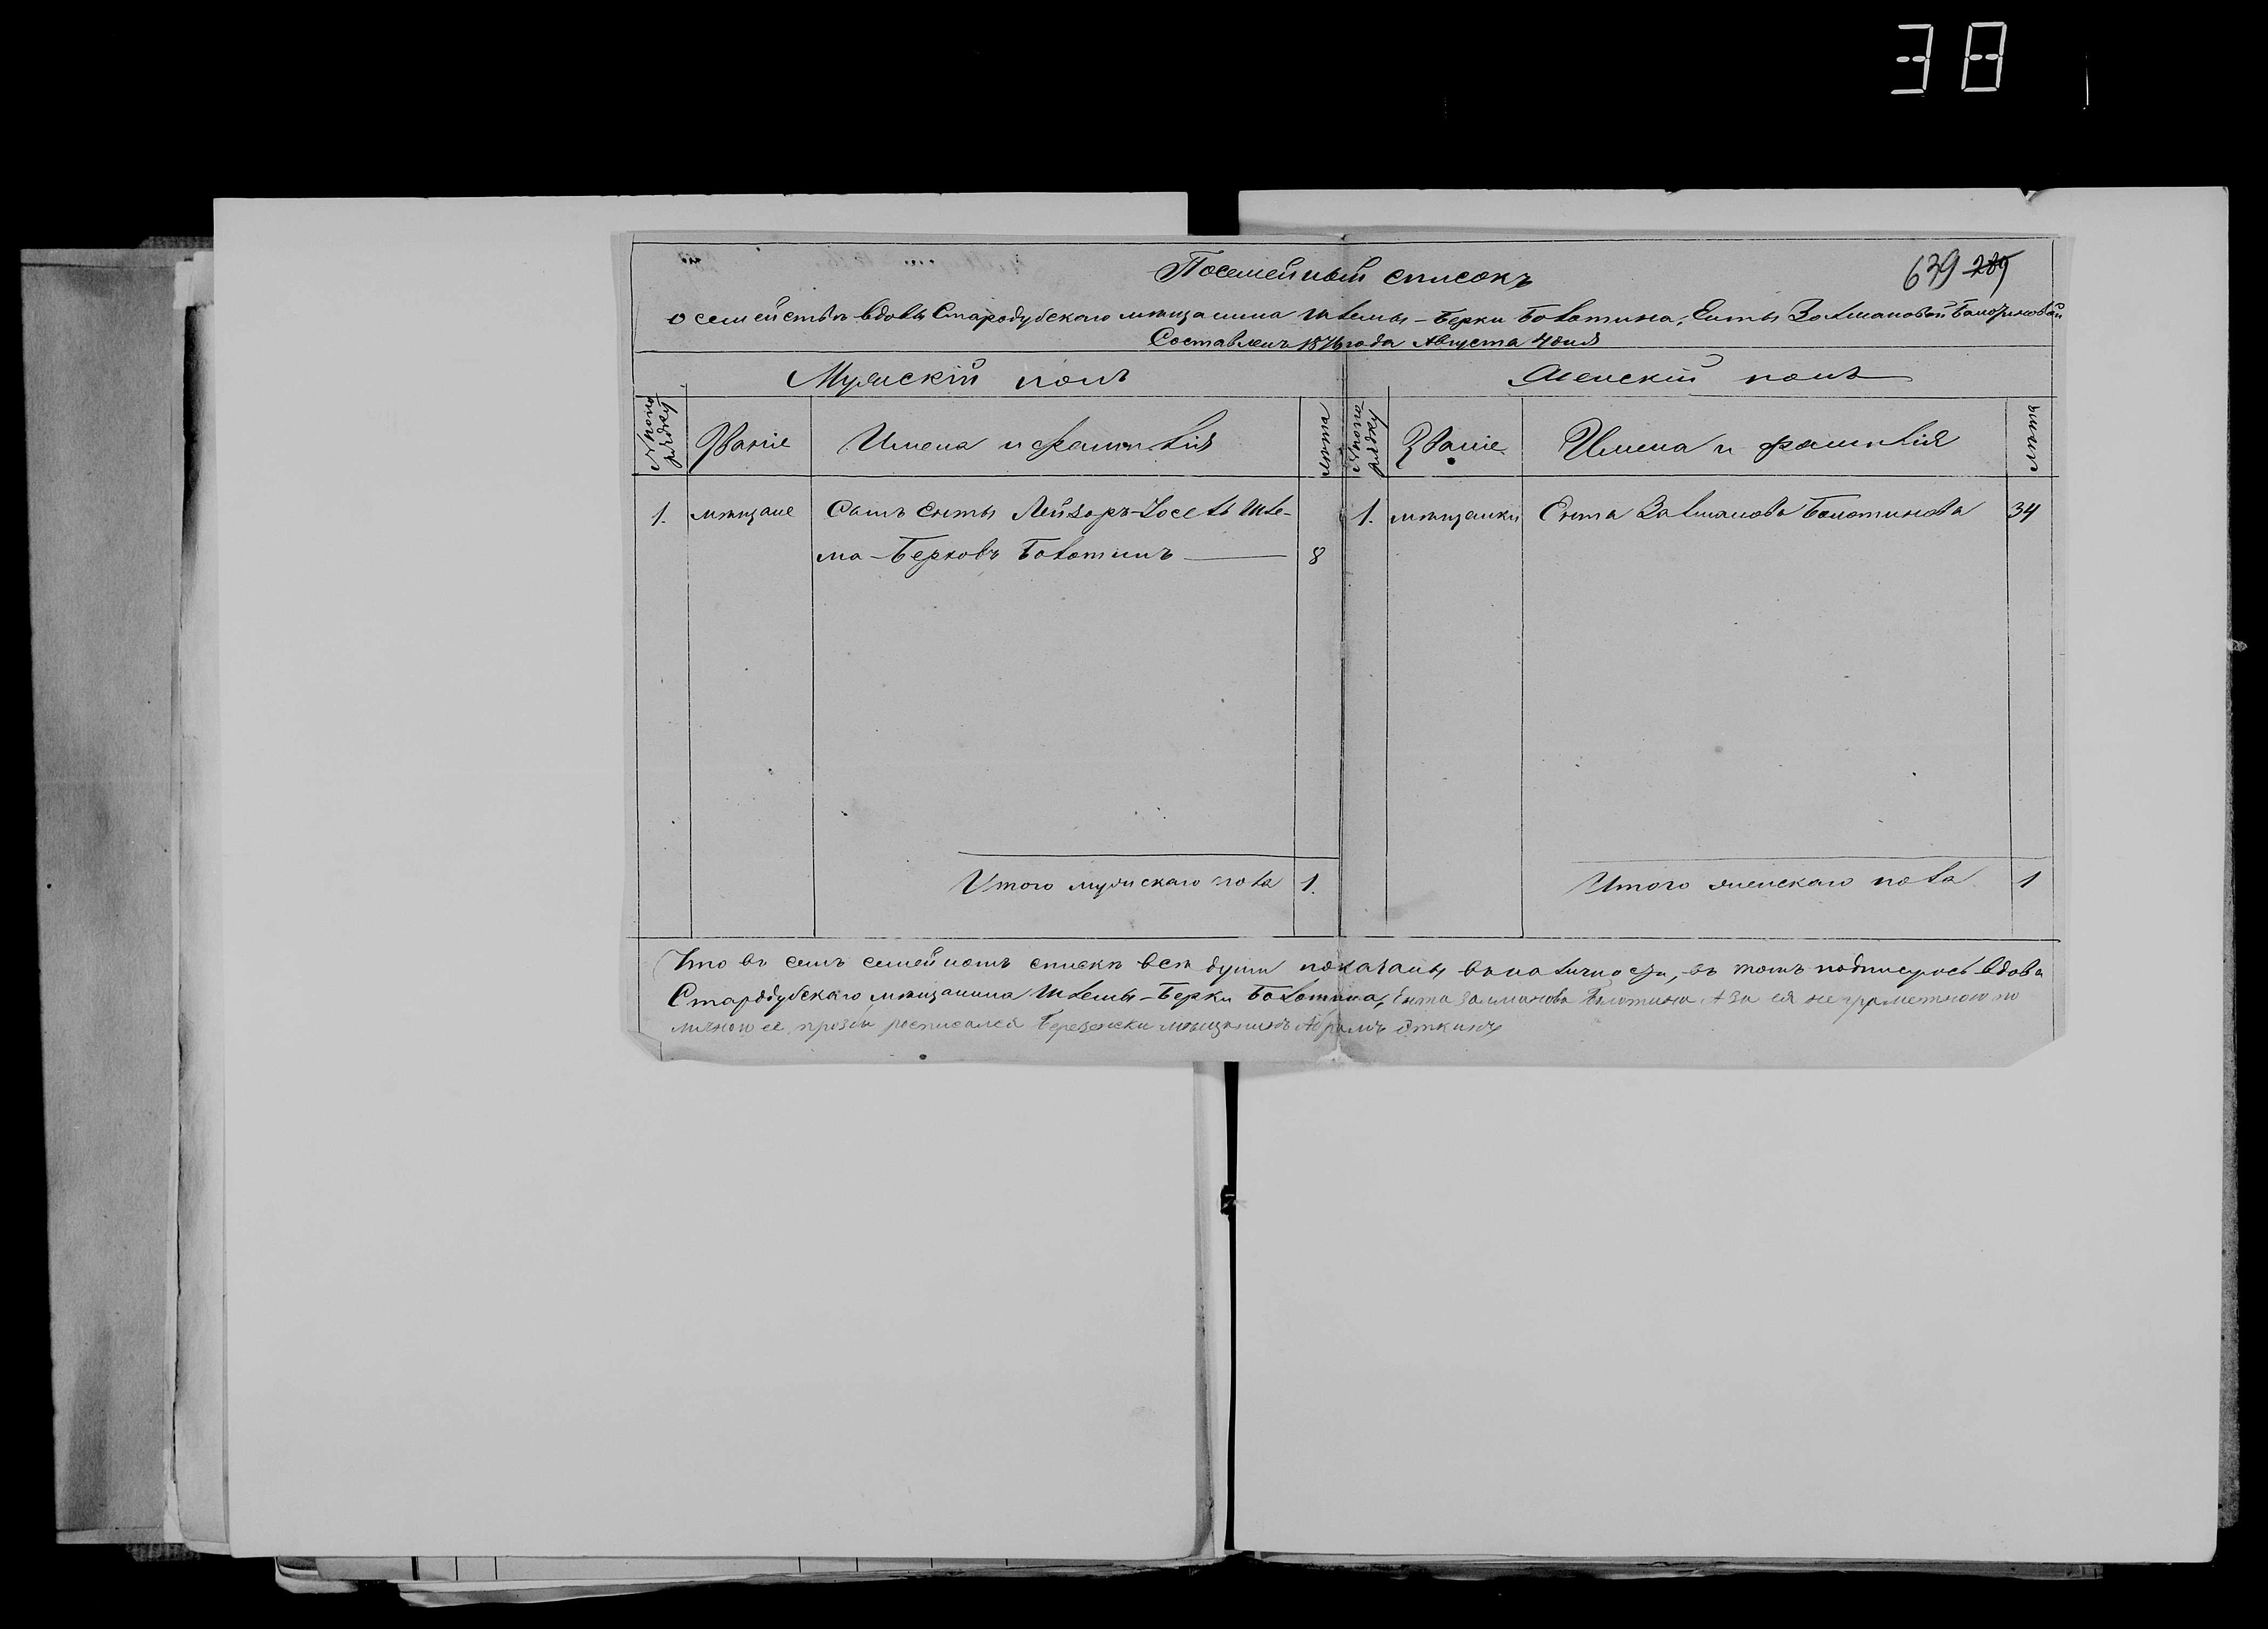 38
Посемейный списокъ
639 289
о семействѣ вдовы Стародубскаго мѣщанина Шлемы-Берки Болотина, Енты Залмановой Болотиновой
Составленъ 1876 года Августа 4 дня
Мужскій полъ
Женскій полъ
№ по по рядку Званіе Имена и фамилія лѣта
№ по по рядку Званіе Имена и фамилія лѣта
1. мѣщане Сынъ Енты Лейзоръ-Іосель Шле-
ма-Берковъ Болотинъ 8
1. мѣщанки Ента Залманова Болотинова 34
Итого мужскаго пола 1.
Итого женскаго пола 1
Что въ семъ семейномъ списки всѣ души показаны въ наличности, въ томъ подписуюсь вдова
Стародубскаго мѣщанина Шлемы-Берки Болотина, Ента Залманова Болотина А за ея не граметною по
личною ее прозби росписался Березенски мѣщанинъ Абрамъ Эткинъ